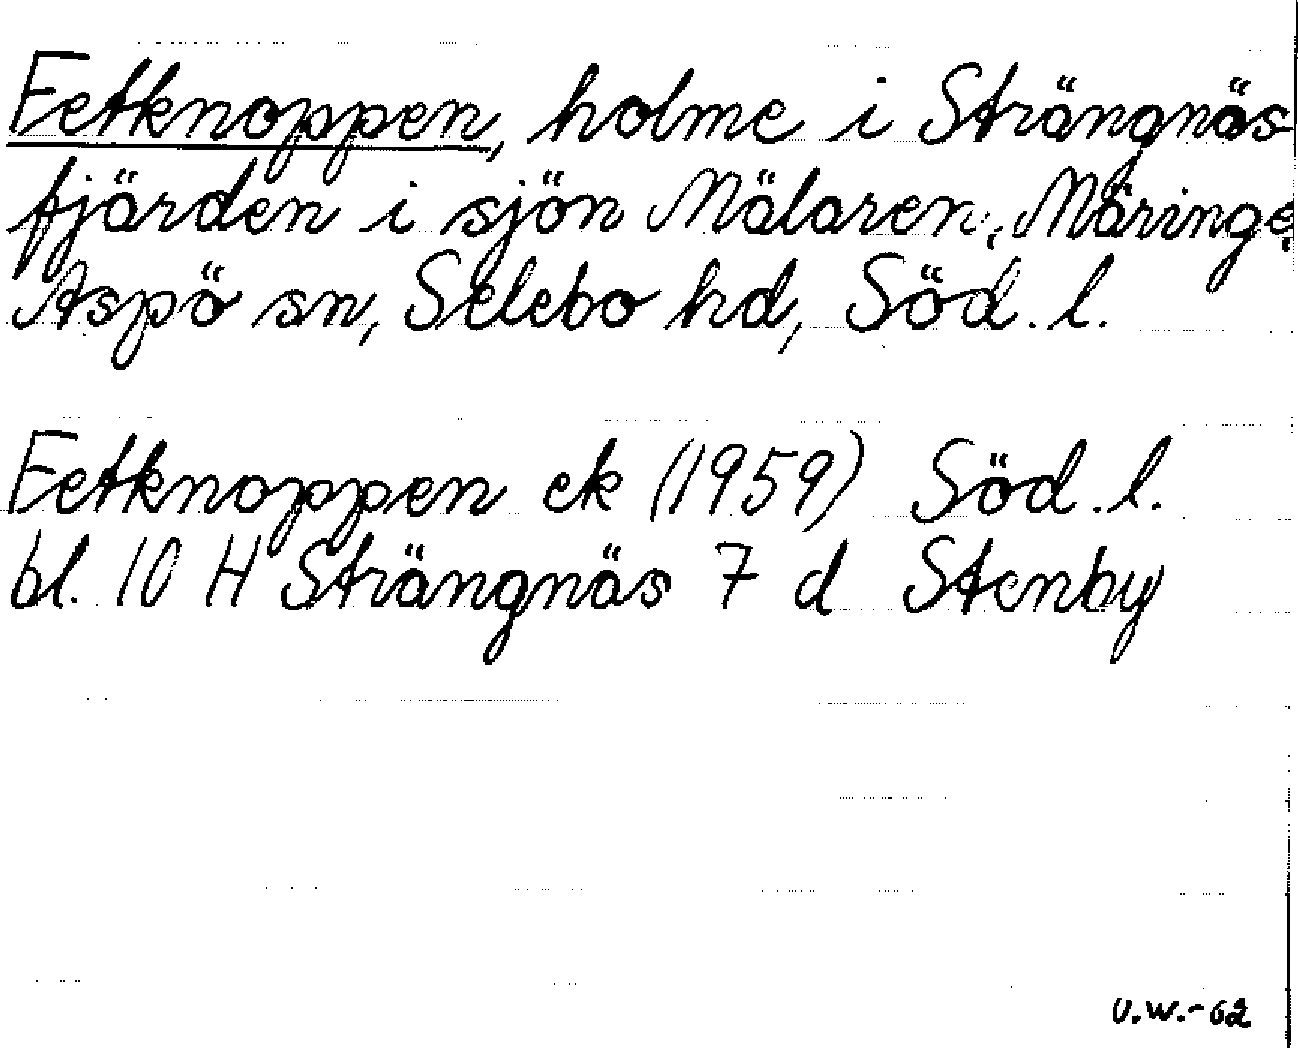 Fetknoppen, holme i Strängnäs-
fjärden i sjön Mälaren, Märinge,
Aspö sn, Selebo hd, Söd. l.
Fetknoppen ek (1959) Söd. l.
bl. 10 H Strängnäs 7 d Stenby
U.W.-62